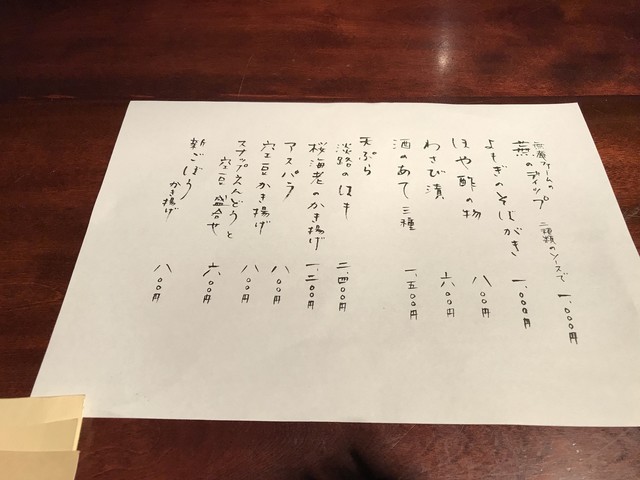 ファームの
蕪のディップ 二種類のソースで 一、〇〇〇円
よもぎのそばがき 一、〇〇〇円
ほや酢の物 八〇〇円
わさび漬 六〇〇円
酒のあて三種 一、五〇〇円
天ぷら
淡路のはも 二、四〇〇円
桜海老のかき揚げ 一、二〇〇円
アスパラ 八〇〇円
空豆かき揚げ 八〇〇円
スナップえんどうと
空豆 盛合せ 六〇〇円
新ごぼう
かき揚げ 八〇〇円